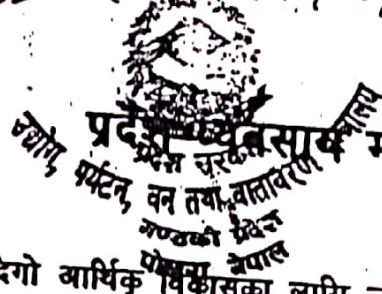 प्रदेश व्यवसाय
प्रदेश सरकार
उद्योग, पर्यटन, वन तथा वातावरण मन्त्रालय
गण्डकी प्रदेश
पोखरा नेपाल
दिगो आर्थिक विकासका लागि